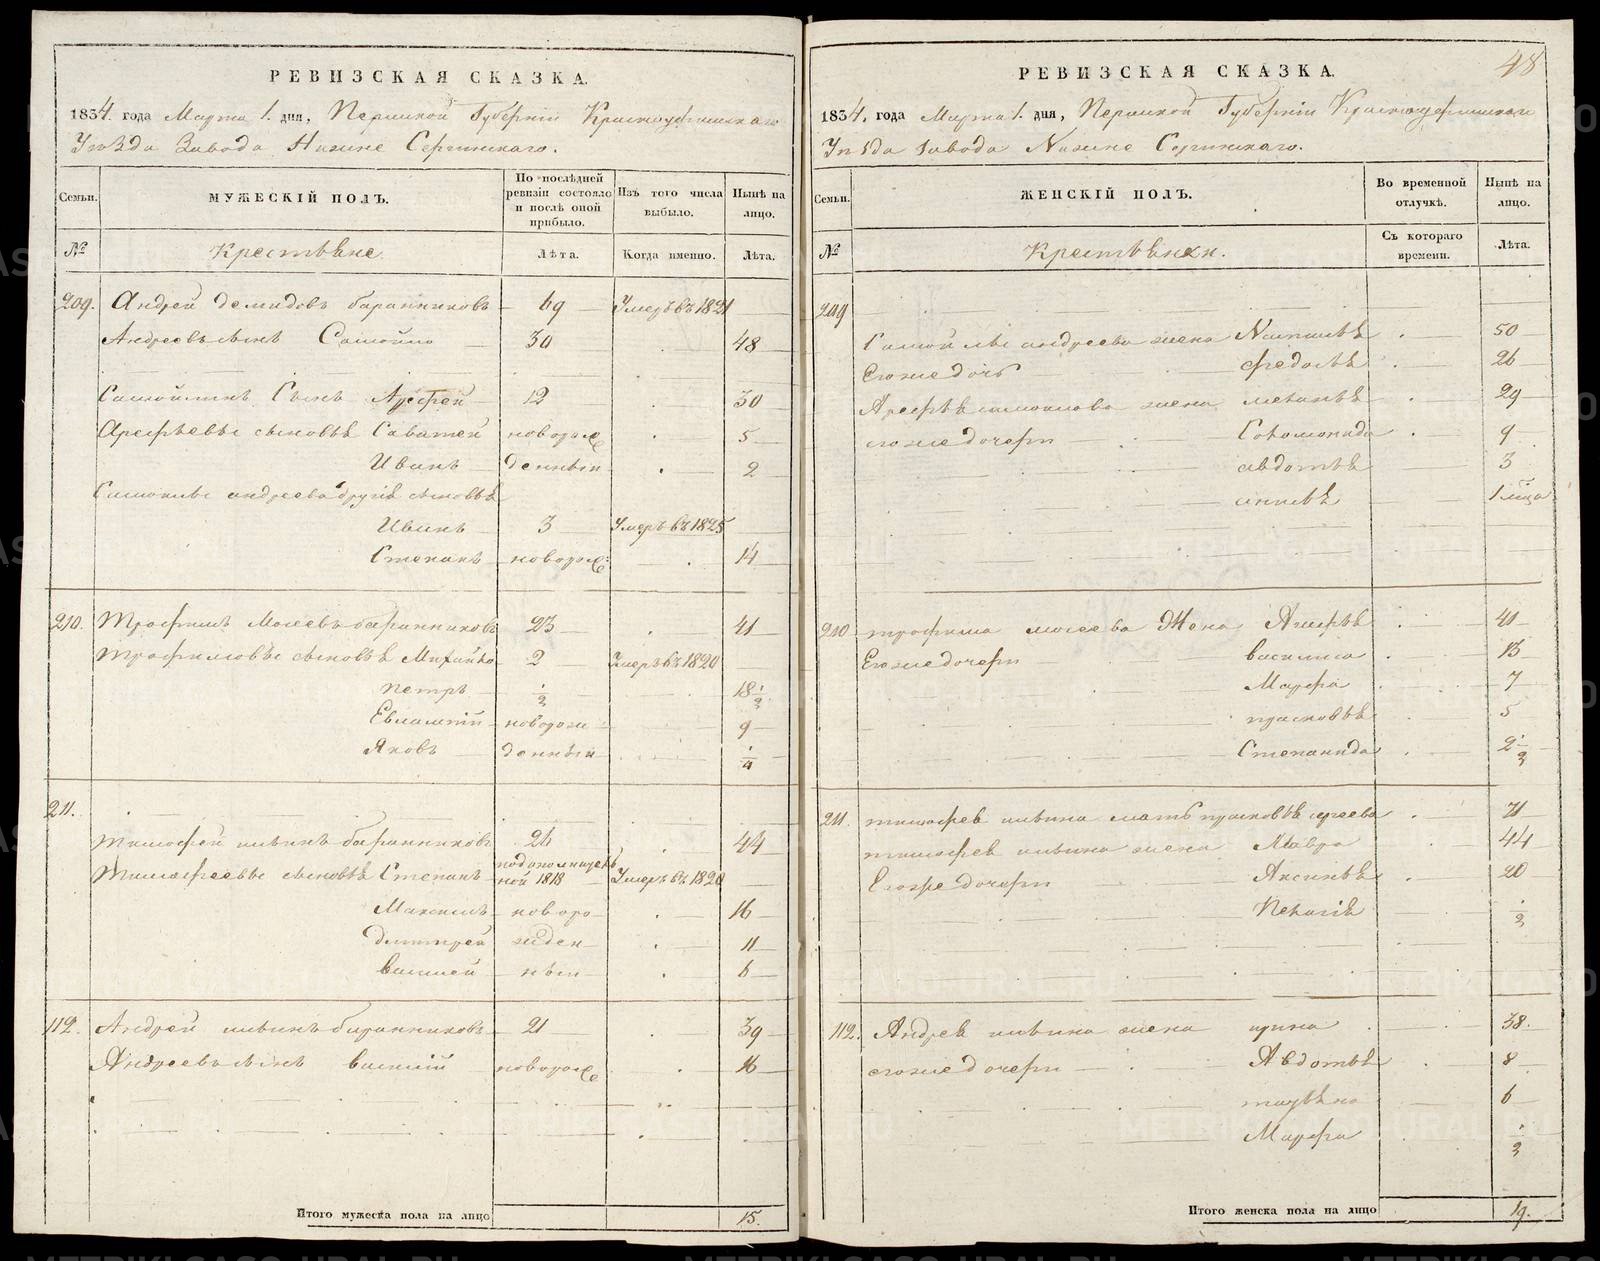 РЕВИЗСКАЯ СКАЗКА.
1834. года Марта 1. дня, Пермской Губерніи Красноуфимскаго
Уѣзда Завода Нижне Сергинскаго.
Семьи.
МУЖЕСКІЙ ПОЛЪ.
По послѣдней ревизіи состояло и послѣ оной прибыло.
Изъ того числа выбыло.
Нынѣ на лицо.
№
Крестьяне
Лѣта.
Когда именно.
Лѣта.
209. Андрей Демидовъ баранниковъ 69 Умеръ въ 1821
Андреевъ сынъ Самойло 30 48
Самойлинъ Сынъ Арефей 12 30
Арефьевы сыновья Саватей новорож 5
Иванъ денныи 2
Самоилы андреева другіе сыновья
Иванъ 3 Умеръ въ 1825
Степанъ новорож: 14
210. Трофимъ Моисеевъ баранниковъ 23 41
Трофимовы сыновья Михайло 2 Умеръ въ 1820
Петръ 1/2 18 1/2
Евлампій новорож 9
Яковъ денныи 1/4
211.
Тимофей ильинъ баранниковъ 26 44
Тимофеевы сыновья Степанъ ной 1818 Умеръ въ 1820
Максимъ новоро 16
Дмитрей жден 11
Василей ныи 6
112. Андрей ильинъ баранниковъ 21 39
Андреевъ сынъ василій новорож 16
Итого мужеска пола на лицо 15.
48
РЕВИЗСКАЯ СКАЗКА.
1834. года Марта 1. дня, Пермской Губерніи Красноуфимскаго
Уѣзда Завода Нижне Сергинскаго.
Семьи.
ЖЕНСКІЙ ПОЛЪ.
Во временной отлучкѣ.
Нынѣ на лицо.
№
Крестьянки.
Съ котораго времени.
Лѣта.
209
Самойлы андреева жена 50
Егоже дочь федосья 26
Арефья самоилова жена меланья 29
егоже дочери Соломонида 9
авдотья 3
анисья
210 трофима моисеева Жена 41
Егоже дочери василиса 13
Марфа 7
прасковья 5
Степанида 2 1/2
211. тимофея ильина мать прасковья сергеева 71
тимофея ильина жена Мавра 44
Егоже дочери Аксинья 20
Пелагія 1/2
112. Андрея ильина жена ирина 38.
егоже дочери Авдотья 8
татьяна 6
Марфа 1/2
Итого женска пола на лицо 19.